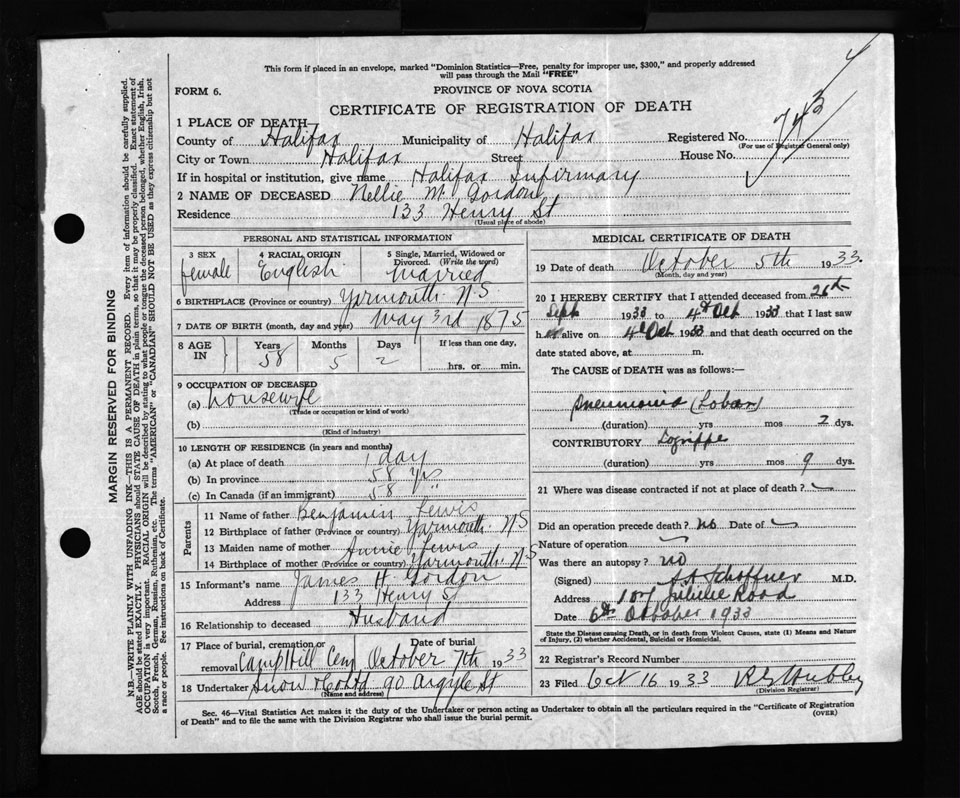 This form if placed in an envelope, marked "Dominion Statistics—Free, penalty for improper use, $300," and properly addressed
will pass through the Mail "FREE"
FORM 6.
PROVINCE OF NOVA SCOTIA
CERTIFICATE OF REGISTRATION OF DEATH
1 PLACE OF DEATH
County of Halifax Municipality of Halifax Registered No. 743
(For use of Registrar General only)
City or Town Halifax Street House No.
If in hospital or institution, give name Halifax Infirmary
2 NAME OF DECEASED Nellie M. Gordon
Residence 133 Henry St
(Usual place of abode)
PERSONAL AND STATISTICAL INFORMATION
3 SEX 4 RACIAL ORIGIN 5 Single, Married, Widowed or
Divorced. (Write the word)
female English Married
6 BIRTHPLACE (Province or country) Yarmouth N S
7 DATE OF BIRTH (month, day and year) May 3rd 1875
8 AGE IN Years Months Days If less than one day,
58 5 2 hrs. or min.
9 OCCUPATION OF DECEASED
(a) housewife
(Trade or occupation or kind of work)
(b)
(Kind of industry)
10 LENGTH OF RESIDENCE (in years and months)
(a) At place of death 1 day
(b) In province 58 Yrs
(c) In Canada (if an immigrant) 58 "
Parents
11 Name of father Benjamin Lewis
12 Birthplace of father (Province or country) Yarmouth N S
13 Maiden name of mother Annie Lewis
14 Birthplace of mother (Province or country) Yarmouth N S
15 Informant's name James H. Gordon
Address 133 Henry St
16 Relationship to deceased Husband
17 Place of burial, cremation or Date of burial
removal Camp Hill Cem October 7th 1933
18 Undertaker Snow & Co Ltd 90 Argyle St
(Name and address)
MEDICAL CERTIFICATE OF DEATH
19 Date of death October 5th 1933.
(Month, day and year)
20 I HEREBY CERTIFY that I attended deceased from
Sept 1933 to 4th Oct 1933 that I last saw
her alive on 4th Oct 1933 and that death occurred on the
date stated above, at m.
The CAUSE of DEATH was as follows:—
Pneumonia (Lobar)
(duration) yrs mos 2 dys.
CONTRIBUTORY Lagrippe
(duration) yrs mos 9 dys.
21 Where was disease contracted if not at place of death?
Did an operation precede death? no Date of
Nature of operation
Was there an autopsy? no
(Signed) M.D.
Address Road
Date 6th October 1933
State the Disease causing Death, or in death from Violent Causes, state (1) Means and Nature
of Injury, (2) whether Accidental, Suicidal or Homicidal.
22 Registrar's Record Number
23 Filed Oct 16 1933
(Division Registrar)
Sec. 46—Vital Statistics Act makes it the duty of the Undertaker or person acting as Undertaker to obtain all the particulars required in the "Certificate of Registration
of Death" and to file the same with the Division Registrar who shall issue the burial permit.
(OVER)
MARGIN RESERVED FOR BINDING
N.B.—WRITE PLAINLY WITH UNFADING INK—THIS IS A PERMANENT RECORD. Every item of information should be carefully supplied.
AGE should be stated EXACTLY. PHYSICIANS should STATE CAUSE OF DEATH in plain terms, so that it may be properly classified. Exact statement of
OCCUPATION is very important. RACIAL ORIGIN will be described by stating to what people or tongue the deceased person belonged, whether English, Irish,
Scotch, French, German, Russian, Ruthenian, etc. The terms "AMERICAN" or "CANADIAN" SHOULD NOT BE USED as they express citizenship but not
a race or people. See instructions on back of Certificate.